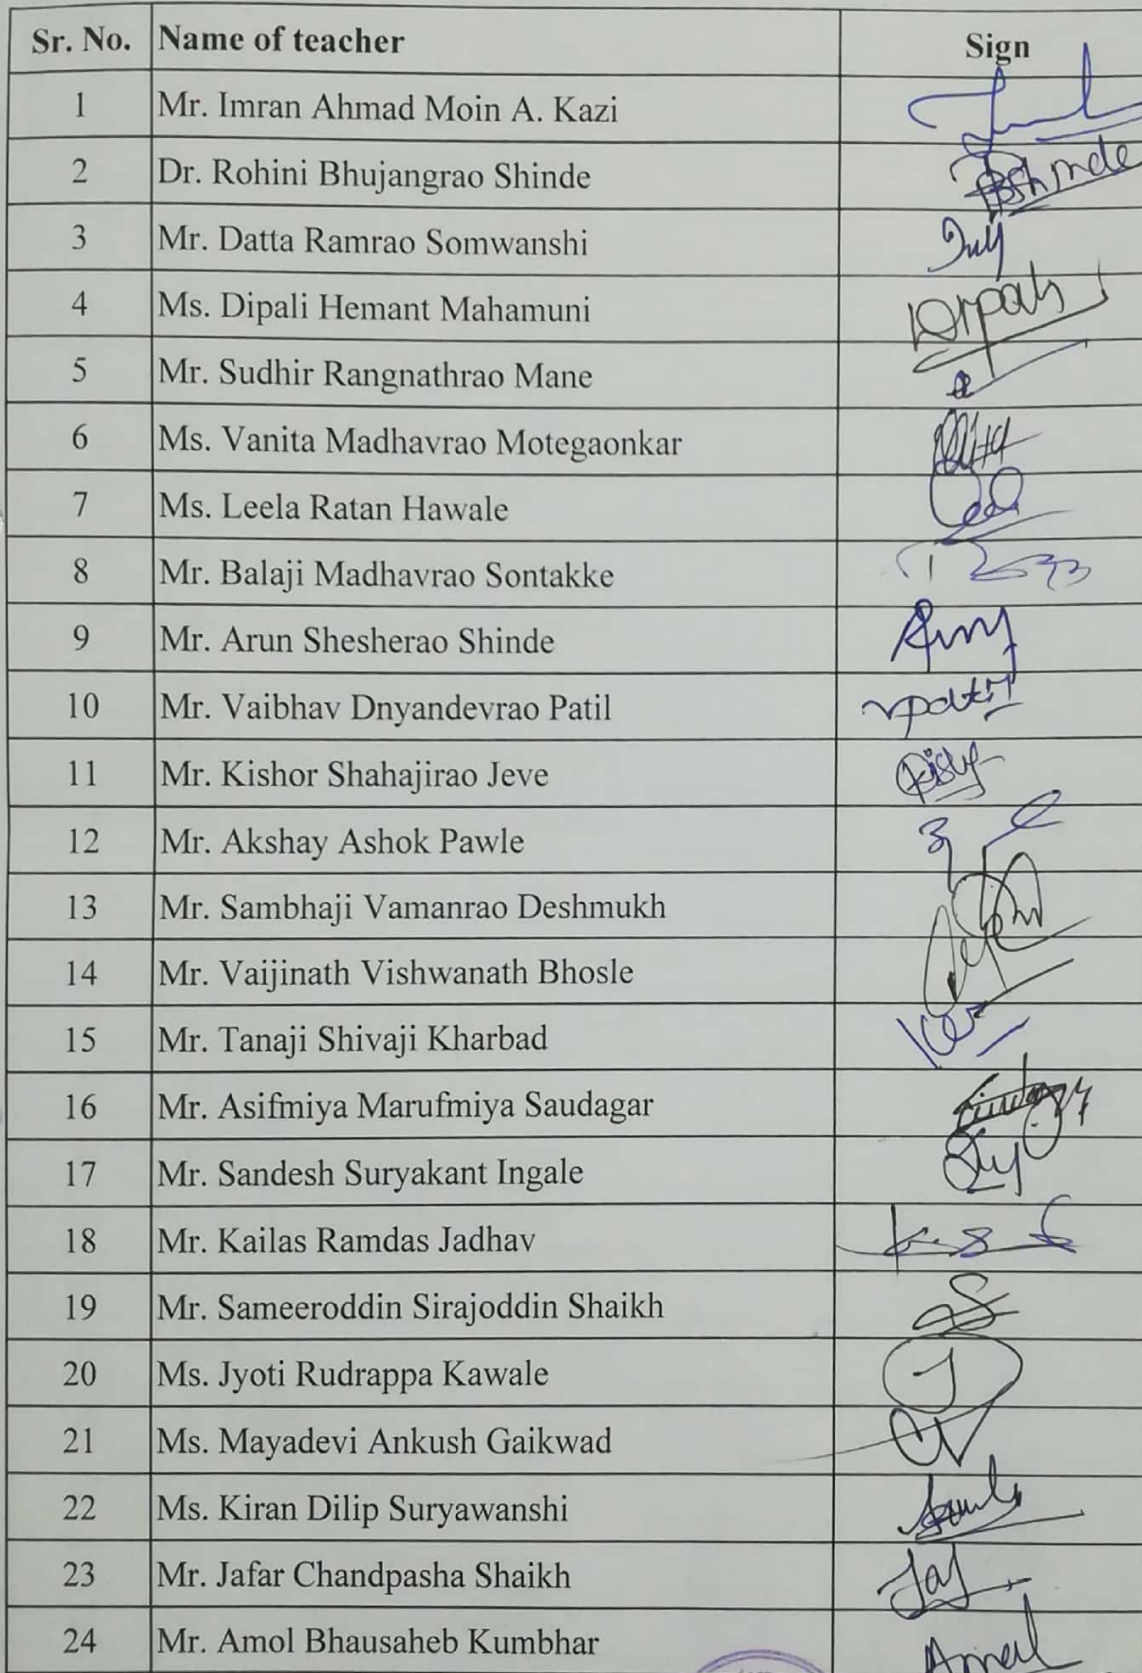 Sr. No. Name of teacher Sign
1 Mr. Imran Ahmad Moin A. Kazi
2 Dr. Rohini Bhujangrao Shinde
3 Mr. Datta Ramrao Somwanshi
4 Ms. Dipali Hemant Mahamuni
5 Mr. Sudhir Rangnathrao Mane
6 Ms. Vanita Madhavrao Motegaonkar
7 Ms. Leela Ratan Hawale
8 Mr. Balaji Madhavrao Sontakke
9 Mr. Arun Shesherao Shinde
10 Mr. Vaibhav Dnyandevrao Patil
11 Mr. Kishor Shahajirao Jeve
12 Mr. Akshay Ashok Pawle
13 Mr. Sambhaji Vamanrao Deshmukh
14 Mr. Vaijinath Vishwanath Bhosle
15 Mr. Tanaji Shivaji Kharbad
16 Mr. Asifmiya Marufmiya Saudagar
17 Mr. Sandesh Suryakant Ingale
18 Mr. Kailas Ramdas Jadhav
19 Mr. Sameeroddin Sirajoddin Shaikh
20 Ms. Jyoti Rudrappa Kawale
21 Ms. Mayadevi Ankush Gaikwad
22 Ms. Kiran Dilip Suryawanshi
23 Mr. Jafar Chandpasha Shaikh
24 Mr. Amol Bhausaheb Kumbhar